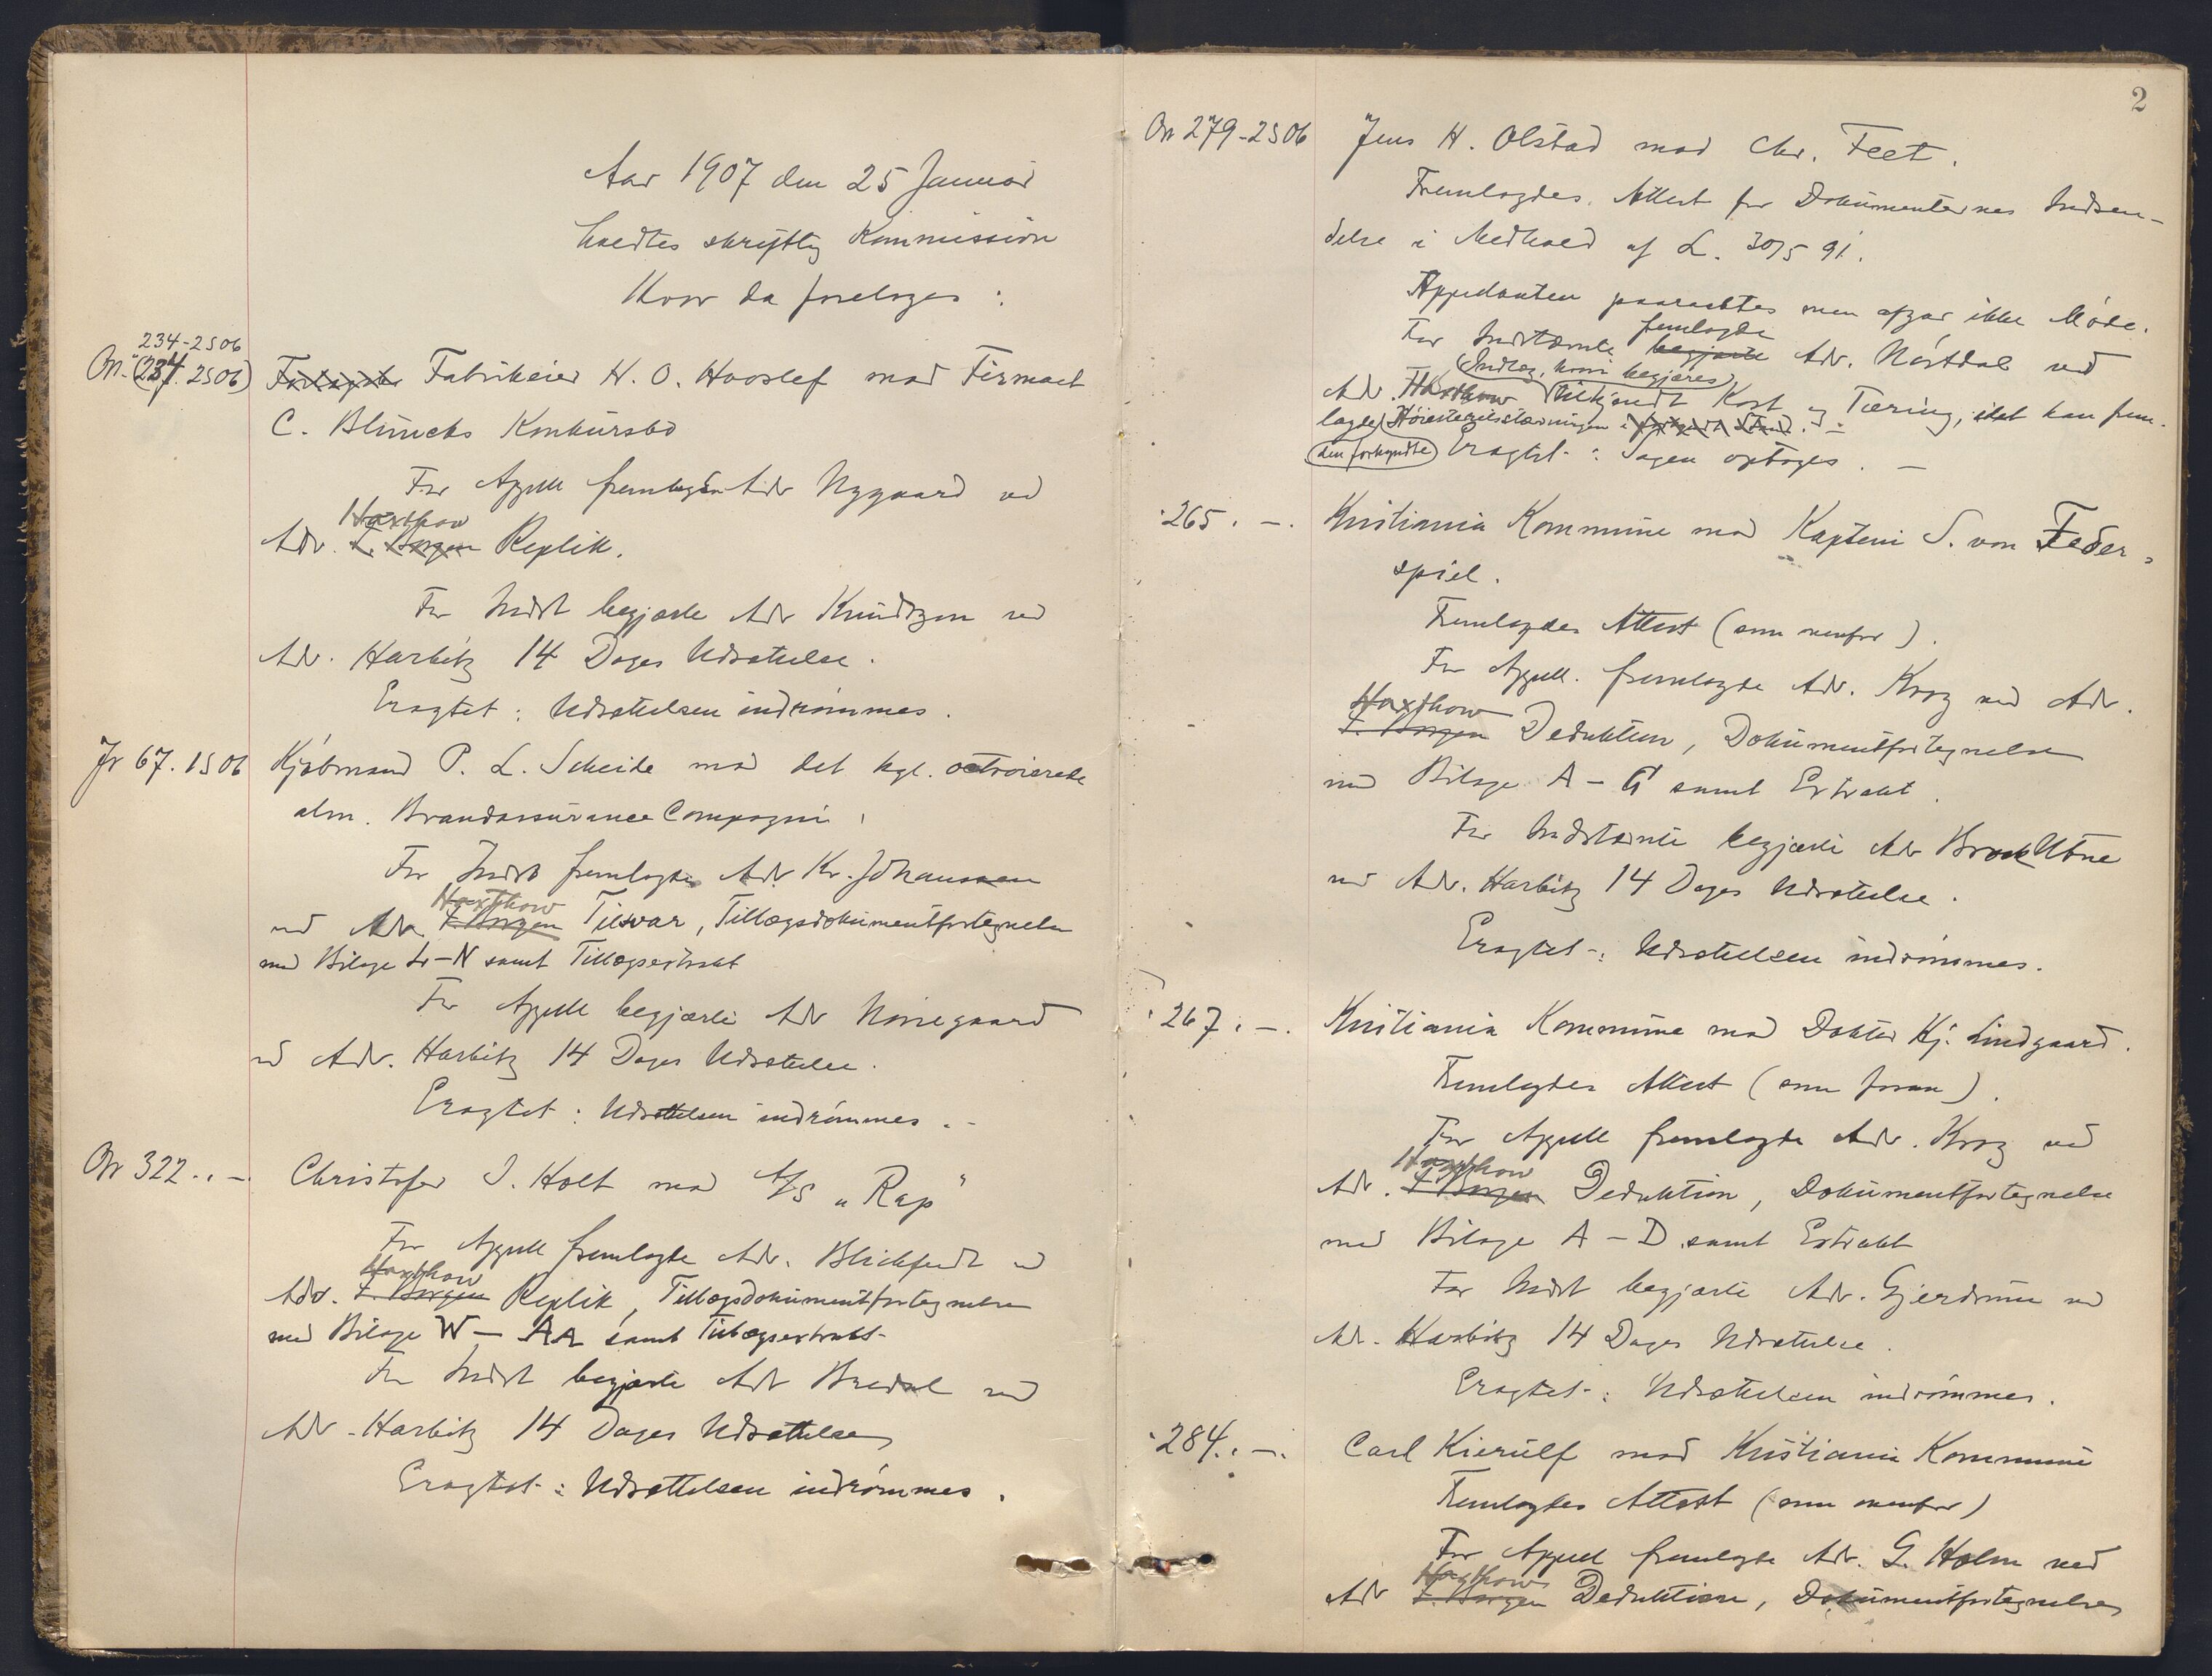 Aar 1907 den 25 Januar
holdtes skriftlig Kommission
Hvor da foretoges:
234-2S06
On. (237. 2S06) Fabrikeier H. O. Hooslef mod Firmaet
C. Blunchs Konkursbo
For Appell fremlagde Adv Nygaard ved
Haxthow
Adv. F. Borgen Replik.
For Indst begjærte Adv Knudtzon ved
Adv. Harbitz 14 Dages Udsættelse.
Eragtet: Udsættelsen indrømmes.
Jr 67. 1S06 Kjøbmand P. L. Scheide mod det kgl. octroierede
alm. Brandassurance Compagni.
For Indst fremlagde Adv. Kr. Johanssen
Haxthow
ved Adv F. Borgen Tilsvar, Tillægsdokumentfortegnelse
med Bilage L-N samt Tillægsextrakt
For Appell begjærte Adv Nørregaard
ved Adv. Harbitz 14 Dages Udsættelse.
Eragtet: Udsættelsen indrømmes.-
On 322..- Christofer I. Holt mod A/S "Rap"
For Appell fremlagde Adv. Blichfeldt ved
Haxthow
Adv. F. Borgen Replik, Tillægsdokumentfortegnelse
med Bilage W - AA samt Tillægsextrakt
For Indst begjærte Adv Bredal ved
Adv. Harbitz 14 Dages Udsættelse
Eragtet: Udsættelsen indrømmes.
2
On 279-2S06 Jens H. Olstad mod Chr. Feet.
Fremlagdes Attest for Dokumenternes Indsen-
delse i Medhold af L. 30/5 91.
Appellanten paaraabtes men afgav ikke Møde.
fremlagde
For Indstævnte begjærte Adv. Nørstdal ved
Indlæg, hvori begjæres
Adv. Haxthow tilkjendt Kost og Tæring, idet han frem-
lagde Høiesteretsstævningen
den forkyndte Eragtet: Sagen optages. -
265. -. Kristiania Kommune mod Kaptein S. von Feder-
spiel.
Fremlagdes Attest (som ovenfor).
For Appell. fremlagde Adv. Krog ved Adv.
Haxthow
F. Borgen Deduktion, Dokumentfortegnelse
med Bilage A - G samt Extrakt.
For Indstævnte begjærte Adv Brock Utne
ved Adv. Harbitz 14 Dages Udsættelse.
Eragtet: Udsættelsen indrømmes.
267. -. Kristiania Kommune mod Doktor Hj. Lindgaard.
Fremlagdes Attest (som foran).
For Appell fremlagde Adv. Krog ved
Haxthow
Adv. F. Borgen Deduktion, Dokumentfortegnelse
med Bilage A - D samt Extrakt
For Indst begjærte Adv. Gjerdrum ved
Adv. Harbitz 14 Dages Udsættelse.
Eragtet: Udsættelsen indrømmes.
284. -. Carl Kierulf mod Kristiania Kommune
Fremlagdes Attest (som ovenfor)
For Appell fremlagde Adv. G. Holm ved
Haxthow
Adv F. Borgen Deduktion, Dokumentfortegnelse